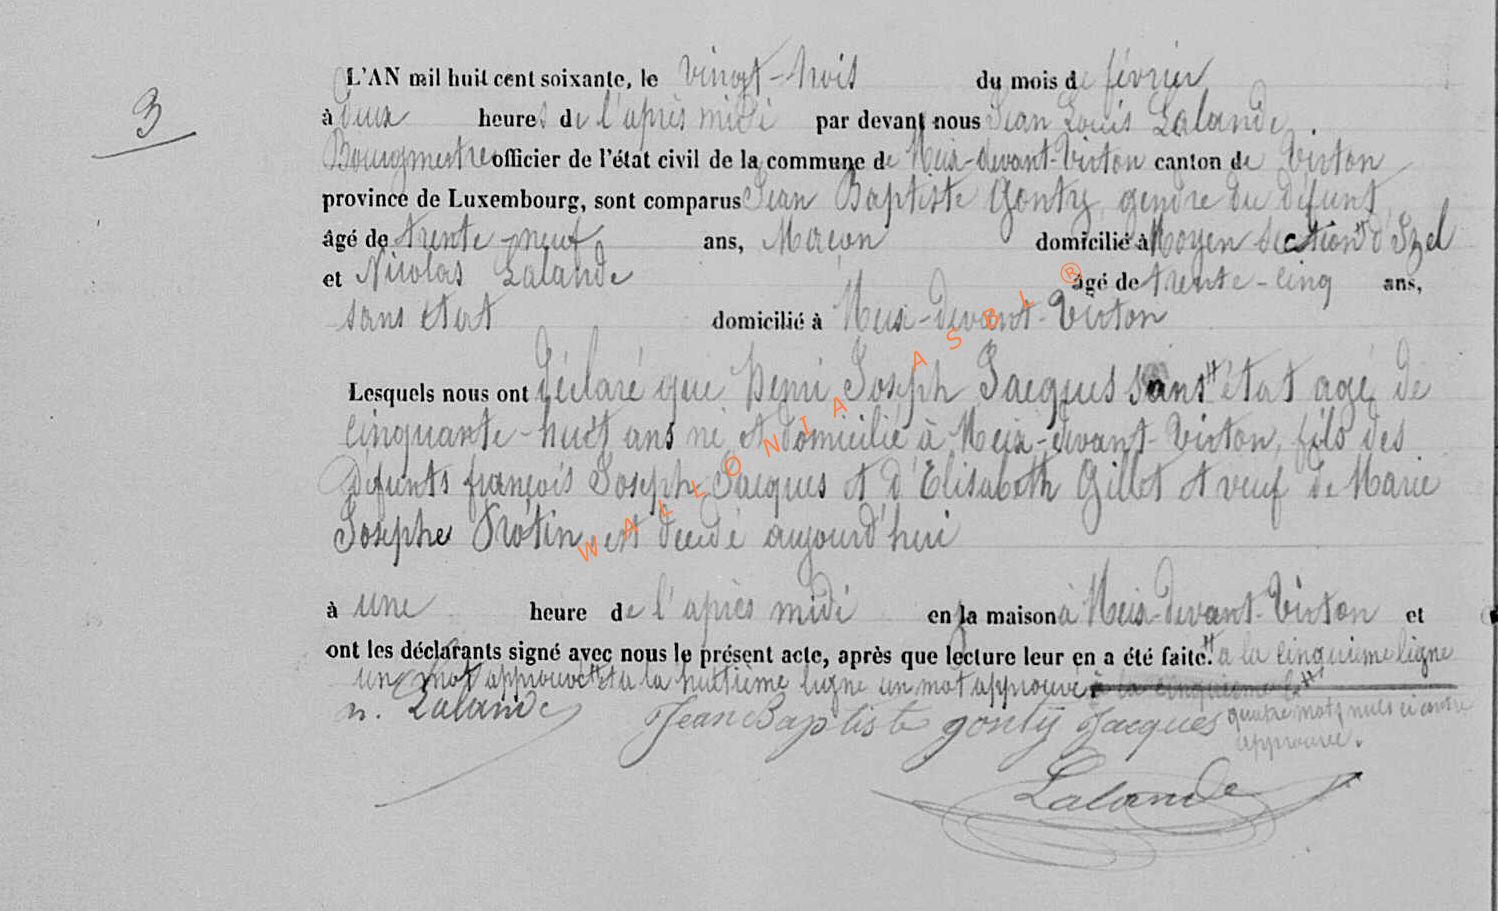 3
L'AN mil huit cent soixante, le vingt-trois du mois de février
à deux heures de l'après midi par devant nous Jean Louis Lalande,
Bourgmestre officier de l'état civil de la commune de Meix-devant-Virton canton de Virton
province de Luxembourg, sont comparus Jean Baptiste Gonty, gendre du défunt
âgé de trente-neuf ans, Maçon domicilié à Moyen section d'Izel
et Nicolas Lalande âgé de trente-cinq ans,
sans état domicilié à Meix-devant-Virton
Lesquels nous ont déclaré que Henri Joseph Jacques sans état agé de
cinquante-huit ans né et domicilié à Meix-devant-Virton, fils des
défunts françois Joseph Jacques et d'Elisabeth Gillet et veuf de Marie
Josephe Trotin, est décédé aujourd'hui
à une heure de l'après midi en la maison à Meix-devant-Virton et
ont les déclarants signé avec nous le présent acte, après que lecture leur en a été faite. a la cinquieme ligne
un mot approuvé et a la huitième ligne un mot approuvé à la cinquieme
n. Lalande Jean Baptiste gonty Jacques quatre mots nuls ci contre
approuvé.
Lalande
WALLONIA ASBL ®